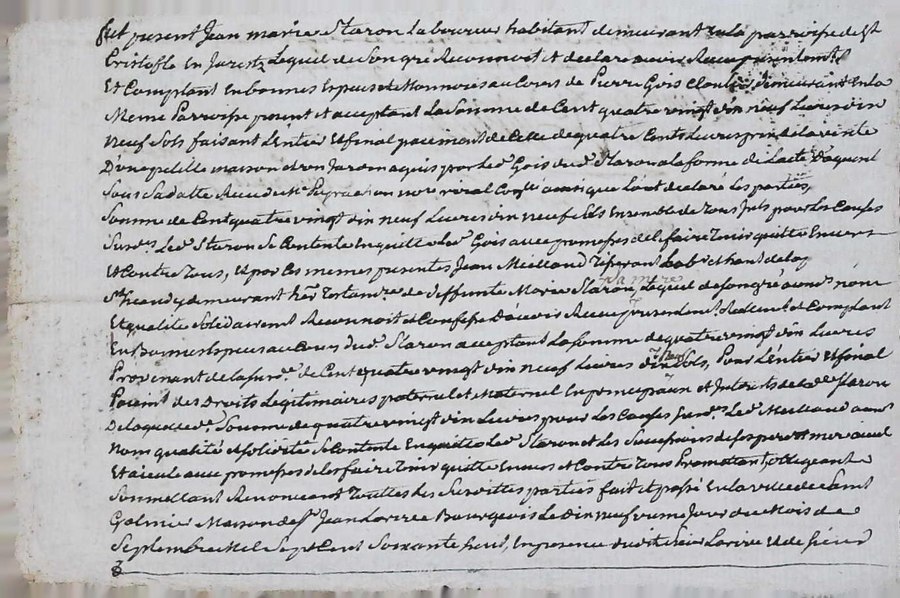 fut present Jean marie Staron Laboureur habitant demeurant en la parroisse de St
Cristofle en Jarest Lequel de Son gré Reconnoit et declare avoir Receu presentemt
Et Comptant En bonnes Especes et Monnoies au Cours de Pierre Gois demeurant En la
Meme Parroisse present et acceptant La Somme de Cent quatre vingt dix neuf Livres dix
neuf Sols faisant L'entier Et final paiement de Celle de quatre Cents Livres prix de la vente
D'une petitte maison et un Jardin aquis par Led Gois dud Staron a la forme de L'acte D'aquest
Sous Sa datte Receu de Me not Royal ainsi que L'ont declaré Les parties,
Somme de Cent quatre vingt dix neuf Livres dix neuf sols Ensemble de Tous pour Les Causes
Susd Led Staron Se Contente En quitte Led Gois avec promesse de le faire Tenir quitte Envers
Et Contre Tous, Et par Ces memes presentes Jean habitant de
St demeurant hertr Testamre de deffunte Marie Staron sa mere Lequel de son gré aud nom
Et qualité Solidairemt Reconnoit et Confesse D'avoir Receu presentemt Reelemt et Comptant
En Bonnes Especes au Cours dud Staron acceptant La Somme de quatre vingt dix Livres
Provenant de la surde de Cent quatre vingt dix neuf Livres dix neuf Sols, Pour L'entier Et final
Paiemt des Droits Legitimaires paternel et Maternel En principaux et Interets de lade Staron
De laquelle Somme de quatre vingt dix Livres pour Les Causes Susdes Led aud
Nom qualité et solidité Se Contente En quitte Led Staron et Les Successions de ses pere et mere aieul
Et aieule avec promesse de les faire Tenir quitte Envers et Contre Tous Promettant obligeant
Soumettant Renonceant Touttes Les Susdittes parties fait et passé En la ville de Saint
Galmier Maison de Sr Jean Bourgeois Le Dix neufvieme Jour du Mois de
Septembre Mil Sept Cent Soixante huit, En presence dudit Sieur Et de Sieur